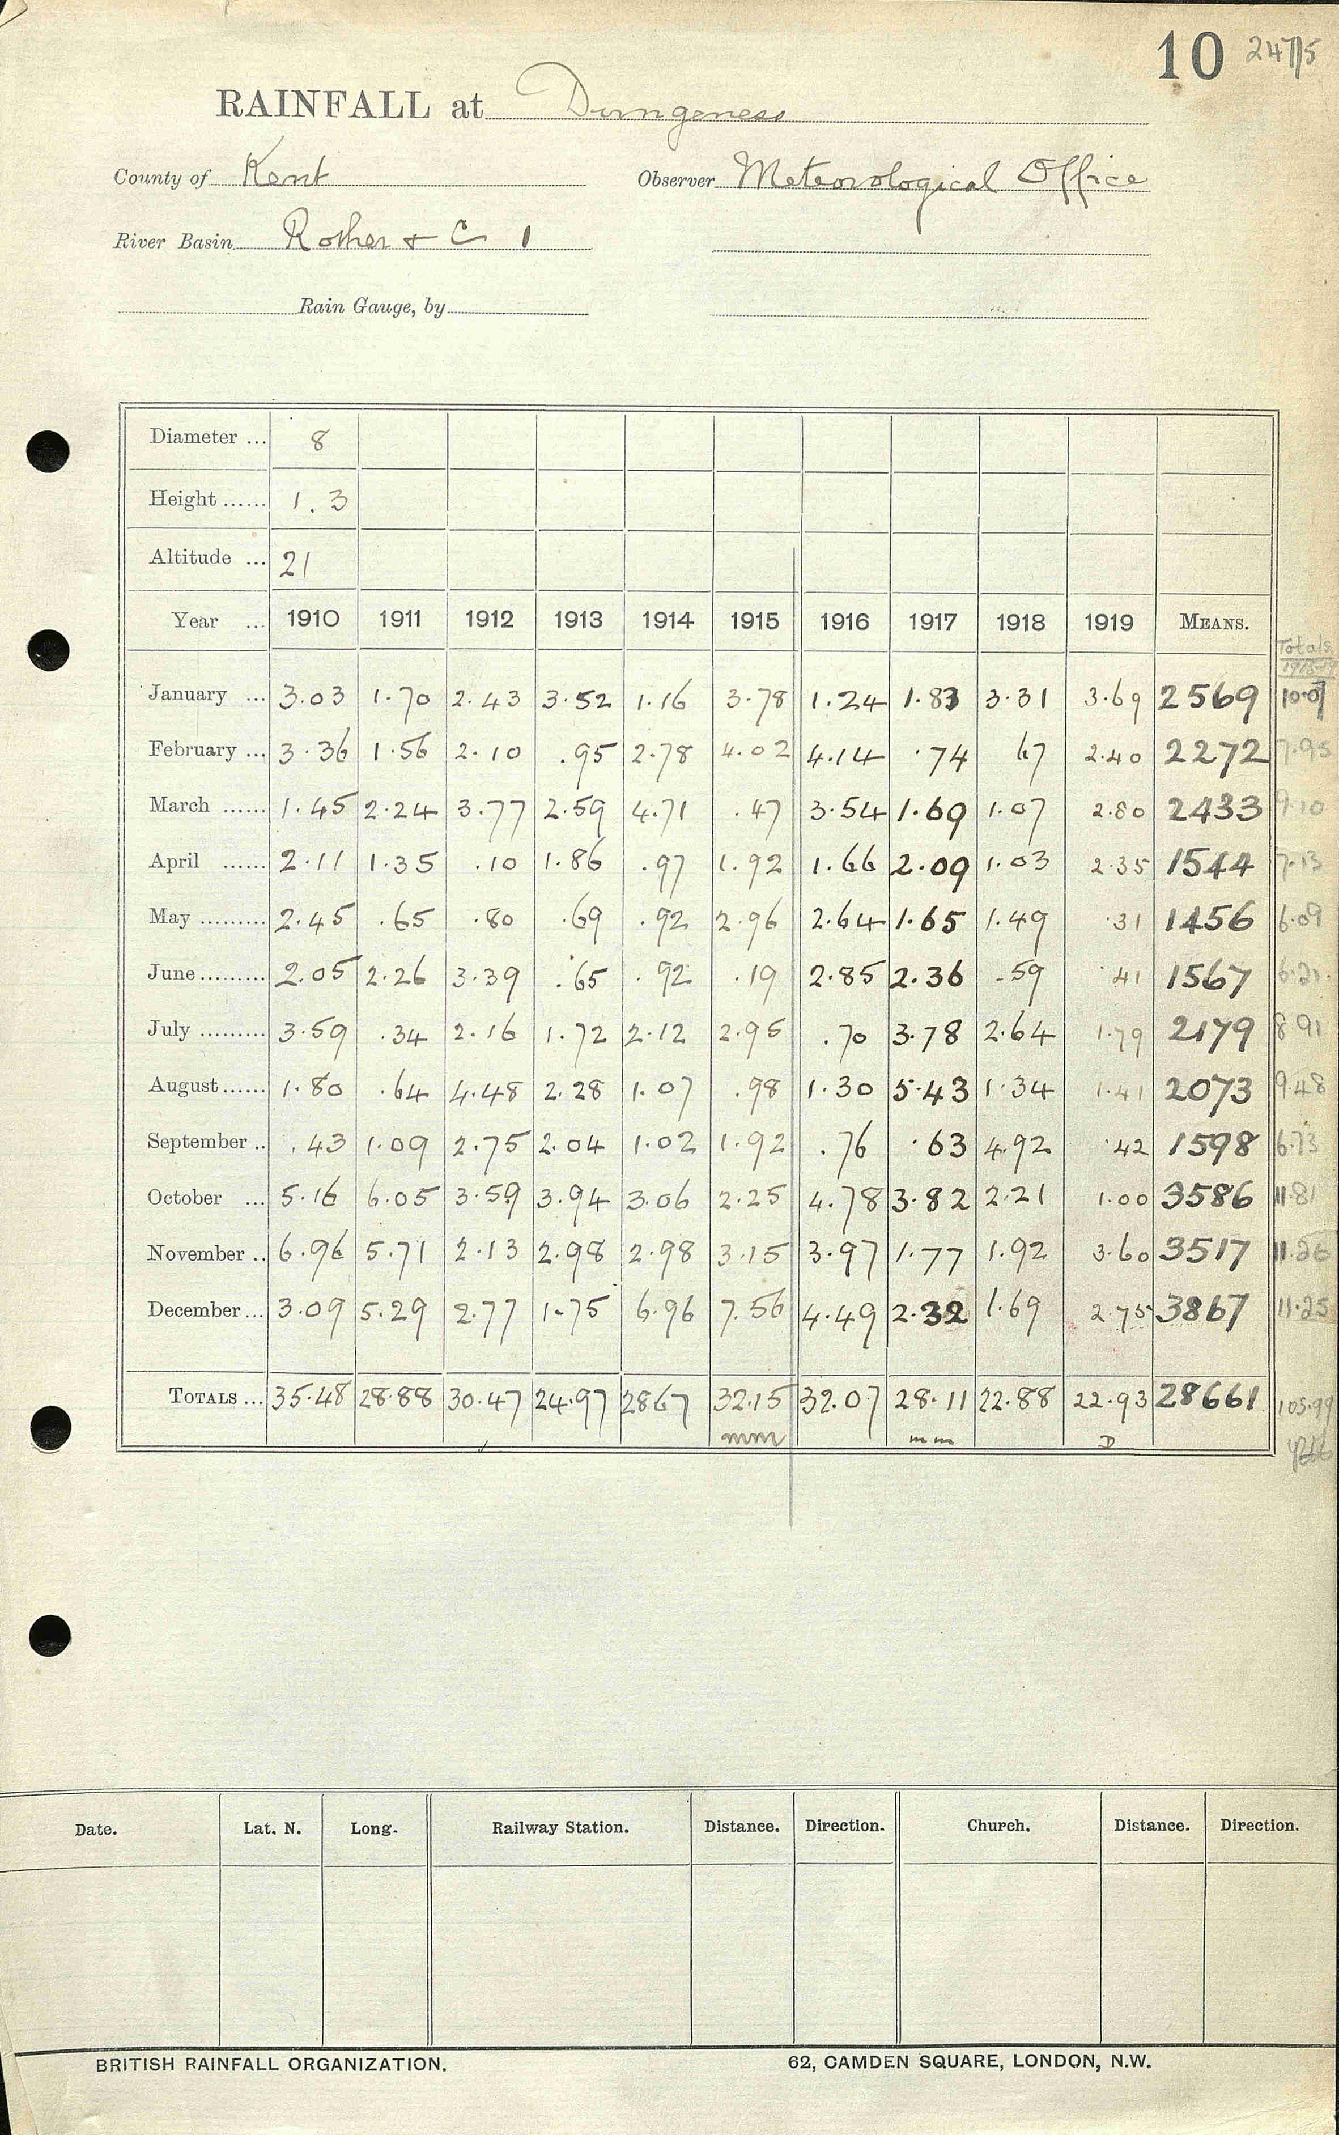 10 247/5
RAINFALL at Dungeness
County of Kent Observer Meteorological Office
River Basin Rother + C 1
Rain Gauge, by
Diameter ... 8
Height ...... 1.3
Altitude ... 21
Year ... 1910 1911 1912 1913 1914 1915 1916 1917 1918 1919 MEANS. Totals
January ... 3.03 1.70 2.43 3.52 1.16 3.78 1.24 1.83 3.31 3.69 2569 10.07
February ... 3.36 1.56 2.10 .95 2.78 4.02 4.14 .74 67 2.40 2272 7.95
March ...... 1.45 2.24 3.77 2.59 4.71 .47 3.54 1.69 1.07 2.80 2433 9.10
April ...... 2.11 1.35 .10 1.86 .97 1.92 1.66 2.09 1.03 2.35 1544 7.13
May ......... 2.45 .65 .80 .69 .92 2.96 2.64 1.65 1.49 .31 1456 6.09
June ......... 2.05 2.26 3.39 .65 .92 .19 2.85 2.36 .59 .41 1567 6.21
July ......... 3.59 .34 2.16 1.72 2.12 2.95 .70 3.78 2.64 1.79 2179 8.91
August ...... 1.80 .64 4.48 2.28 1.07 .98 1.30 5.43 1.34 1.41 2073 9.48
September .. .43 1.09 2.75 2.04 1.02 1.92 .76 .63 4.92 .42 1598 6.73
October ... 5.16 6.05 3.59 3.94 3.06 2.25 4.78 3.82 2.21 1.00 3586 11.81
November .. 6.96 5.71 2.13 2.98 2.98 3.15 3.97 1.77 1.92 3.60 3517 11.26
December ... 3.09 5.29 2.77 1.75 6.96 7.56 4.49 2.32 1.69 2.75 3867 11.25
TOTALS ... 35.48 28.88 30.47 24.97 2867 32.15 32.07 28.11 22.88 22.93 28661 105.99
mm mm D
Date. Lat. N. Long. Railway Station. Distance. Direction. Church. Distance. Direction.
BRITISH RAINFALL ORGANIZATION. 62, CAMDEN SQUARE, LONDON, N.W.